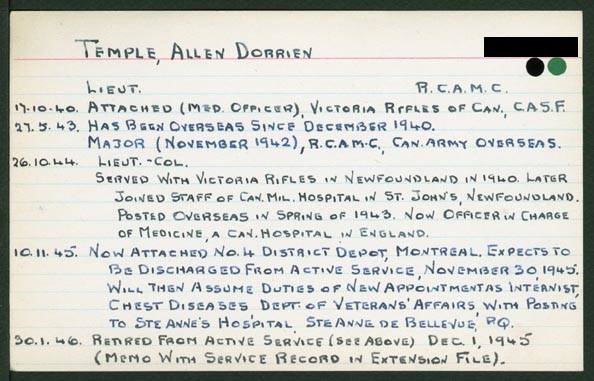 TEMPLE, ALLEN DORRIEN
LIEUT. R.C.A.M.C.
17.10.40. ATTACHED (MED. OFFICER), VICTORIA RIFLES OF CAN., C.A.S.F.
27.5.43. HAS BEEN OVERSEAS SINCE DECEMBER 1940.
MAJOR (NOVEMBER 1942), R.C.A.M.C., CAN. ARMY OVERSEAS.
26.10.44. LIEUT.-COL.
SERVED WITH VICTORIA RIFLES IN NEWFOUNDLAND IN 1940. LATER
JOINED STAFF OF CAN. MIL. HOSPITAL IN ST. JOHN'S, NEWFOUNDLAND.
POSTED OVERSEAS IN SPRING OF 1943. NOW OFFICER IN CHARGE
OF MEDICINE, A CAN. HOSPITAL IN ENGLAND.
10.11.45. NOW ATTACHED NO. 4 DISTRICT DEPOT, MONTREAL. EXPECTS TO
BE DISCHARGED FROM ACTIVE SERVICE, NOVEMBER 30, 1945.
WILL THEN ASSUME DUTIES OF NEW APPOINTMENT AS INTERNIST,
CHEST DISEASES, DEPT. OF VETERANS' AFFAIRS, WITH POSTING
TO STE ANNE'S HOSPITAL, STE ANNE DE BELLEVUE, P.Q.
30.1.46. RETIRED FROM ACTIVE SERVICE (SEE ABOVE) DEC. 1, 1945
(MEMO WITH SERVICE RECORD IN EXTENSION FILE).